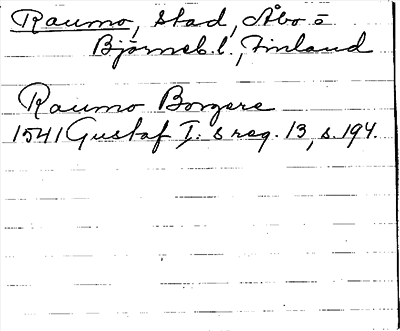 Raumo, stad, Åbo o
Björneb. l., Finland
Raumo Borgere
1541 Gustaf I:s reg. 13, s. 194.